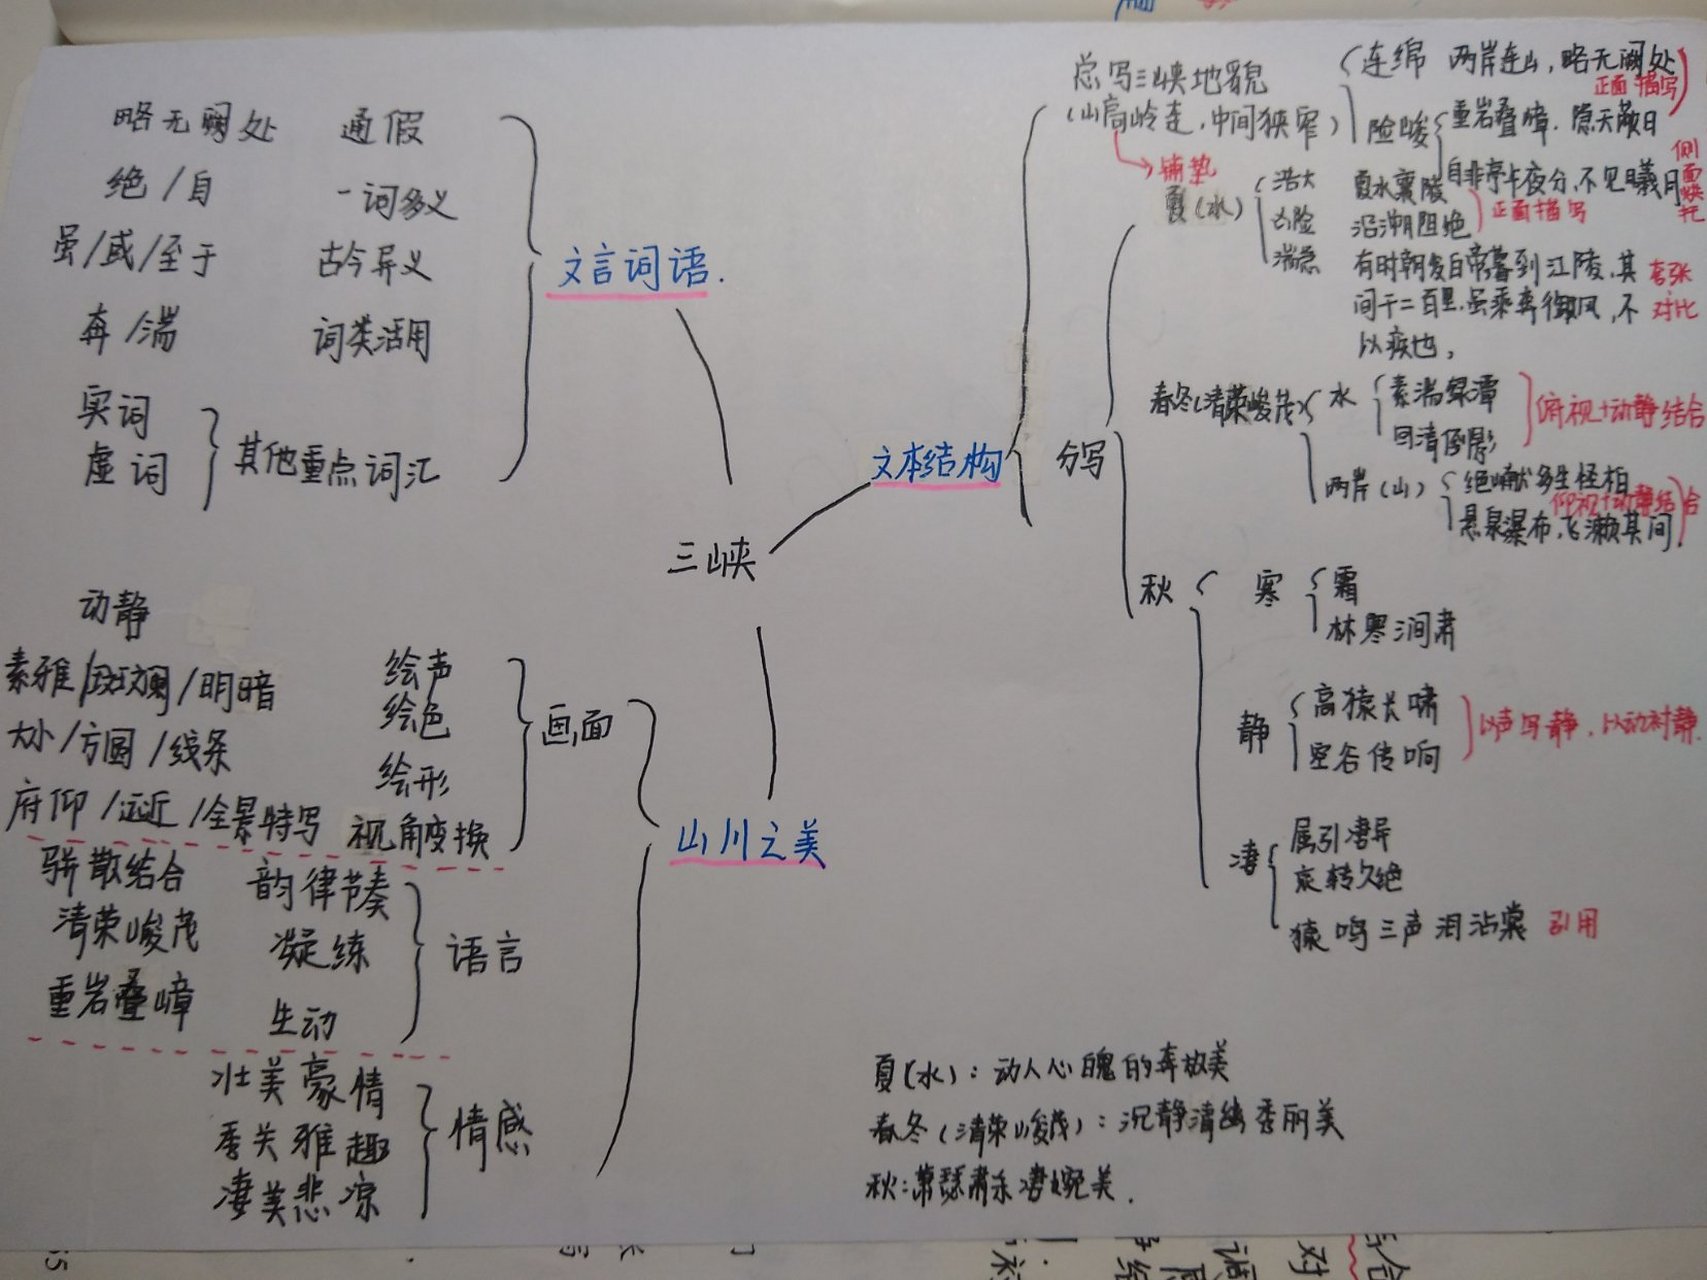 略无阙处 通假
绝/自 一词多义
虽/或/至于 古今异义
奔/湍 词类活用
实词
虚词
其他重点词汇
文言词语.
三峡
文本结构
总写三峡地貌
(山高岭连,中间狭窄)
铺垫
连绵 两岸连山,略无阙处
正面描写
险峻 重岩叠嶂.隐天蔽日
自非亭午夜分,不见曦月
侧面烘托
夏(水)
浩大 夏水襄陵
凶险 沿溯阻绝
正面描写
湍急 有时朝发白帝暮到江陵,其
间千二百里.虽乘奔御风,不
以疾也,
夸张
对比
分写
春冬(清荣峻茂)
水 素湍绿潭
回清倒影
俯视+动静结合
两岸(山) 绝巘多生怪柏
悬泉瀑布,飞漱其间.
仰视+动静结合
秋 寒 霜
林寒涧肃
静 高猿长啸
空谷传响
以声写静,以动衬静.
凄 属引凄异
哀转久绝
猿鸣三声泪沾裳 引用
动静 绘声
素雅/斑斓/明暗 绘色
大小/方圆/线条 绘形
府仰/远近/全景特写 视角变换
画面
山川之美
骈散结合 韵律节奏
清荣峻茂 凝练
重岩叠嶂 生动
语言
壮美豪情
秀美雅趣
凄美悲凉
情感
夏(水):动人心魄的奔放美
春冬(清荣峻茂):沉静清幽秀丽美
秋:萧瑟肃杀凄婉美.